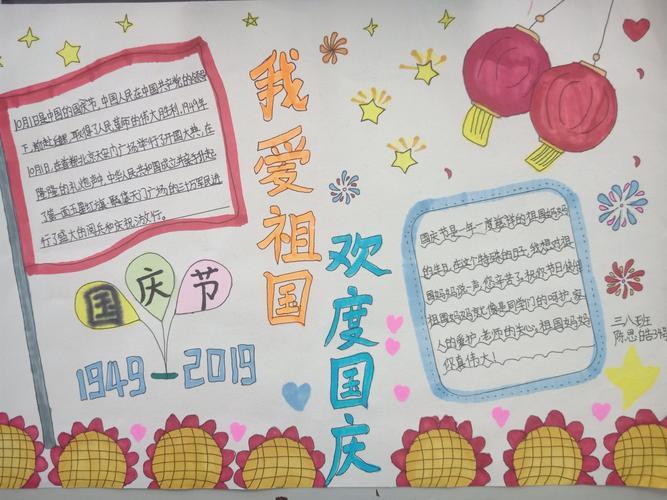 10月1日是中国的国庆节，中国人民在中国共产党的领导
下，前赴后继，取得了人民革命的伟大胜利，1949年
10月1日，在首都北京天安门广场举行了开国大典，在
隆隆的礼炮声，中华人民共和国成立，亲手升起
了第一面五星红旗，聚集天门广场的三十万军民进
行了盛大的阅兵和庆祝游行。
国庆节
1949 2019
我爱祖国
欢度国庆
国庆节是一年一度慈祥的祖国妈妈
的生日，在这个特殊的日子，我想对祖
国妈妈说一声，您辛苦了，祝你节日快乐
祖国妈妈就像是同学们的呵护，家
人的爱护，老师的关心，祖国妈妈
你真伟大！
三八班
陈思皓